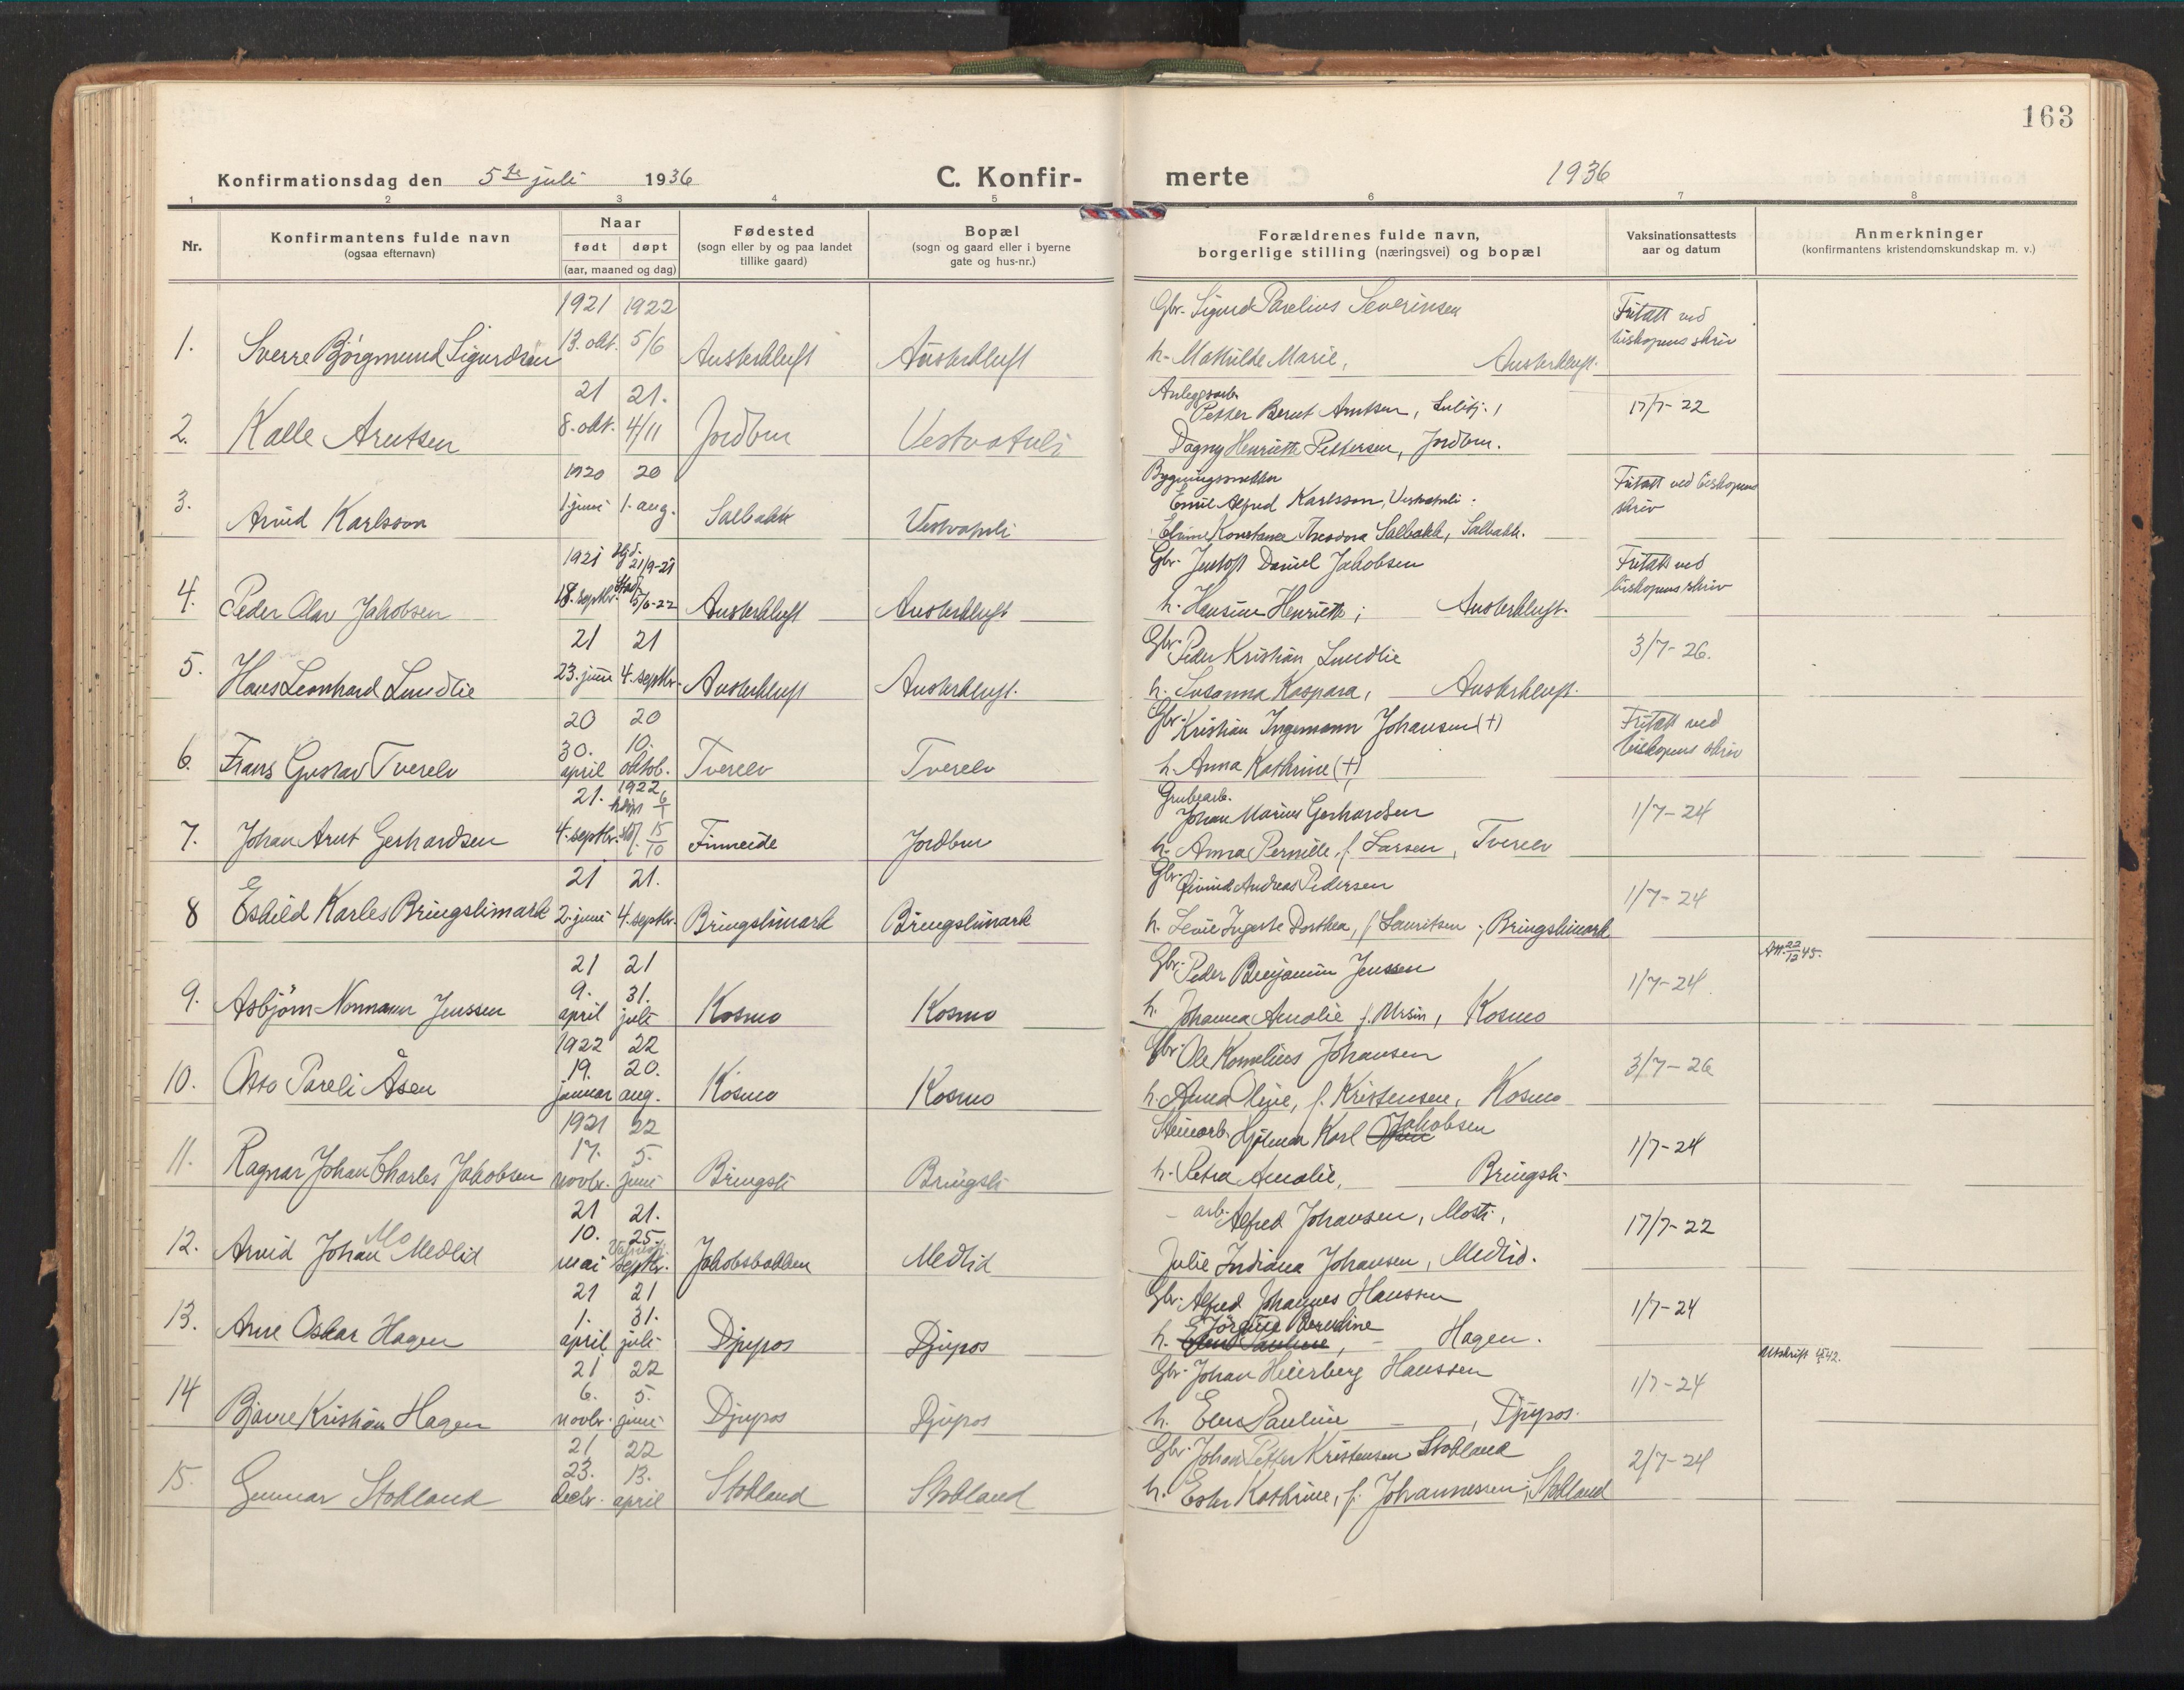 163
Konfirmationsdag den 5te juli 1936 C. Konfir-
merte 1936
1 2 3 4 5 6 7 8
Nr. Konfirmantens fulde navn (ogsaa efternavn) Naar født døpt (aar, maaned og dag) Fødested (sogn eller by og paa landet tillike gaard) Bopæl (sogn og gaard eller i byerne gate og hus-nr.) Forældrenes fulde navn, borgerlige stilling (næringsvei) og bopæl Vaksinationsattests aar og datum Anmerkninger (konfirmantens kristendomskundskap m. v.)
1921 1922 Gbr. Sigurd Parelius Severinsen Fritatt ved
1. Sverre Børgmund Sigurdsen 13. okt. 5/6 Austerkluft Austerkluft h. Mathilde Marie, Austerkluft. biskopens skriv
21 21. Anleggsarb. Petter Bernt Arntsen, Sulitj.,
2. Kalle Arntsen 8. okt. 4/11 Jordbru Vestvatnli Dagny Henriette Pettersen, Jordbru. 17/7-22
1920 20 Bygningssnekker Emil Alfred Karlsson, Vestvatnli. Fritatt ved biskopens
3. Arvid Karlsson 1. juni 1. aug. Salbakk Vestvatnli Konstance Theodora Salbakk, Salbakk. skriv
1921 hjd. 21/9-21 Gbr. Daniel Jakobsen Fritatt ved
4. Peder Olav Jakobsen 18. septbr. stad. 5/6-22 Austerkluft Austerkluft h. Hansine Henriette, Austerkluft. biskopens skriv
21 21 Gbr. Peder Kristian Lundlie
5. Hans Leonhard Lundlie 23. juni 4. septbr. Austerkluft Austerkluft. h. Susanna Kaspara, Austerkluft. 3/7-26.
20 20 Gbr. Kristian Ingemann Johansen (+) Fritatt ved
6. Frans Gustav Tverelv 30. april 10. oktob. Tverelv Tverelv h. Anna Kathrine (+) biskopens skriv
21. 1922 hjem 6/1 Grubearb. Johan Marius Gerhardsen
7. Johan Arnt Gerhardsen 4. septbr. stdf. 15/10 Finneide Jordbru h. Anna Pernille, f. Larsen, Tverelv 1/7-24
21 21. Gbr. Eivind Andreas Pedersen
8 Eskild Karles Bringslimark 2. juni 4. septbr. Bringslimark Bringslimark h. Ingerte Dorthea, f. Lauritsen, Bringslimark 1/7-24
21 21 Gbr. Peder Benjamin Jenssen Att. 22/12 45.
9. Asbjørn Normann Jenssen 9. april 31. juli Kosmo Kosmo h. Johanna Amalie f. Ursin, Kosmo 1/7-24.
1922 22 Gbr. Ole Kornelius Johansen
10. Otto Pareli Åsen 19. januar 20. aug. Kosmo Kosmo h. Anna Oline, f. Kristensen, Kosmo 3/7-26
1921 22 Steinarb. Hjalmar Karl Jakobsen
11. Ragnar Johan Charles Jakobsen 17. novbr. 5. juni Bringsli Bringsli h. Petra Amalie, Bringsli. 1/7-24
21 21. - arb. Alfred Johansen, Mosti,
12. Arvid Johan Mo Medlid 10. mai 25. septbr. Jakobsbakken Medlid Julie Indiana Johansen, Medlid. 17/7-22
21 21 Gbr. Alfred Johannes Hanssen
13. Arne Oskar Hagen 1. april 31. juli Djupos Djupos h. Elen Pauline Jørgine Berntine, Hagen. 1/7-24
21 22 Gbr. Johan Heierberg Hanssen Utskrift 42.
14 Bjarne Kristian Hagen 6. novbr. 5. juni Djupos Djupos h. Elen Pauline, Djupos. 1/7-24
21 22 Gbr. Johan Petter Kristensen Stokland
15. Gunnar Stokland 23. decbr. 13. april Stokland Stokland h. Ester Kathrine, f. Johannessen, Stokland 2/7-24